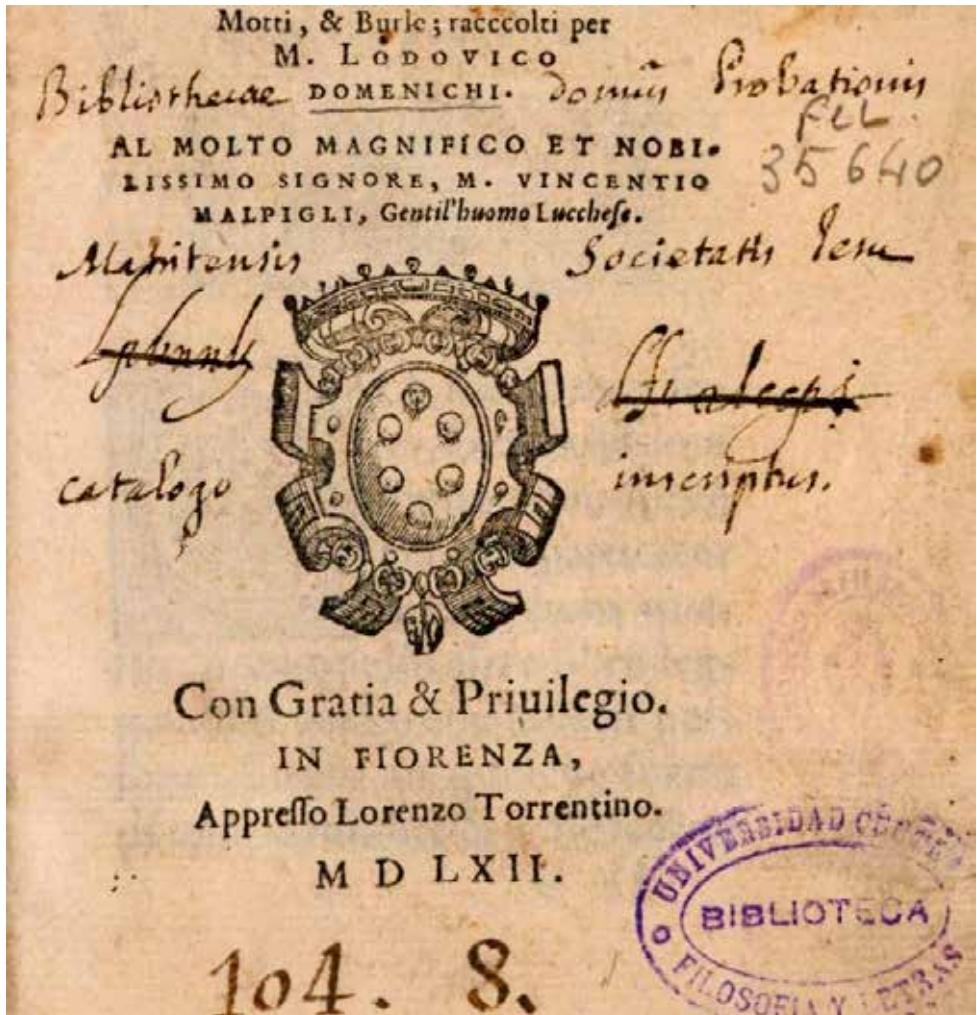 Motti, & Burle; racccolti per
M. LODOVICO
Bibliothecae DOMENICHI. Domus Probationis
FLL
35640
AL MOLTO MAGNIFICO ET NOBI-
LISSIMO SIGNORE, M. VINCENTIO
MALPIGLI, Gentil'huomo Lucchese.
Matritensis Societatis Iesu
catalogo inscriptus.
Con Gratia & Priuilegio.
IN FIORENZA,
Appresso Lorenzo Torrentino.
M D LXII.
UNIVERSIDAD
BIBLIOTECA
FILOSOFIA Y LETRAS
104. 8.